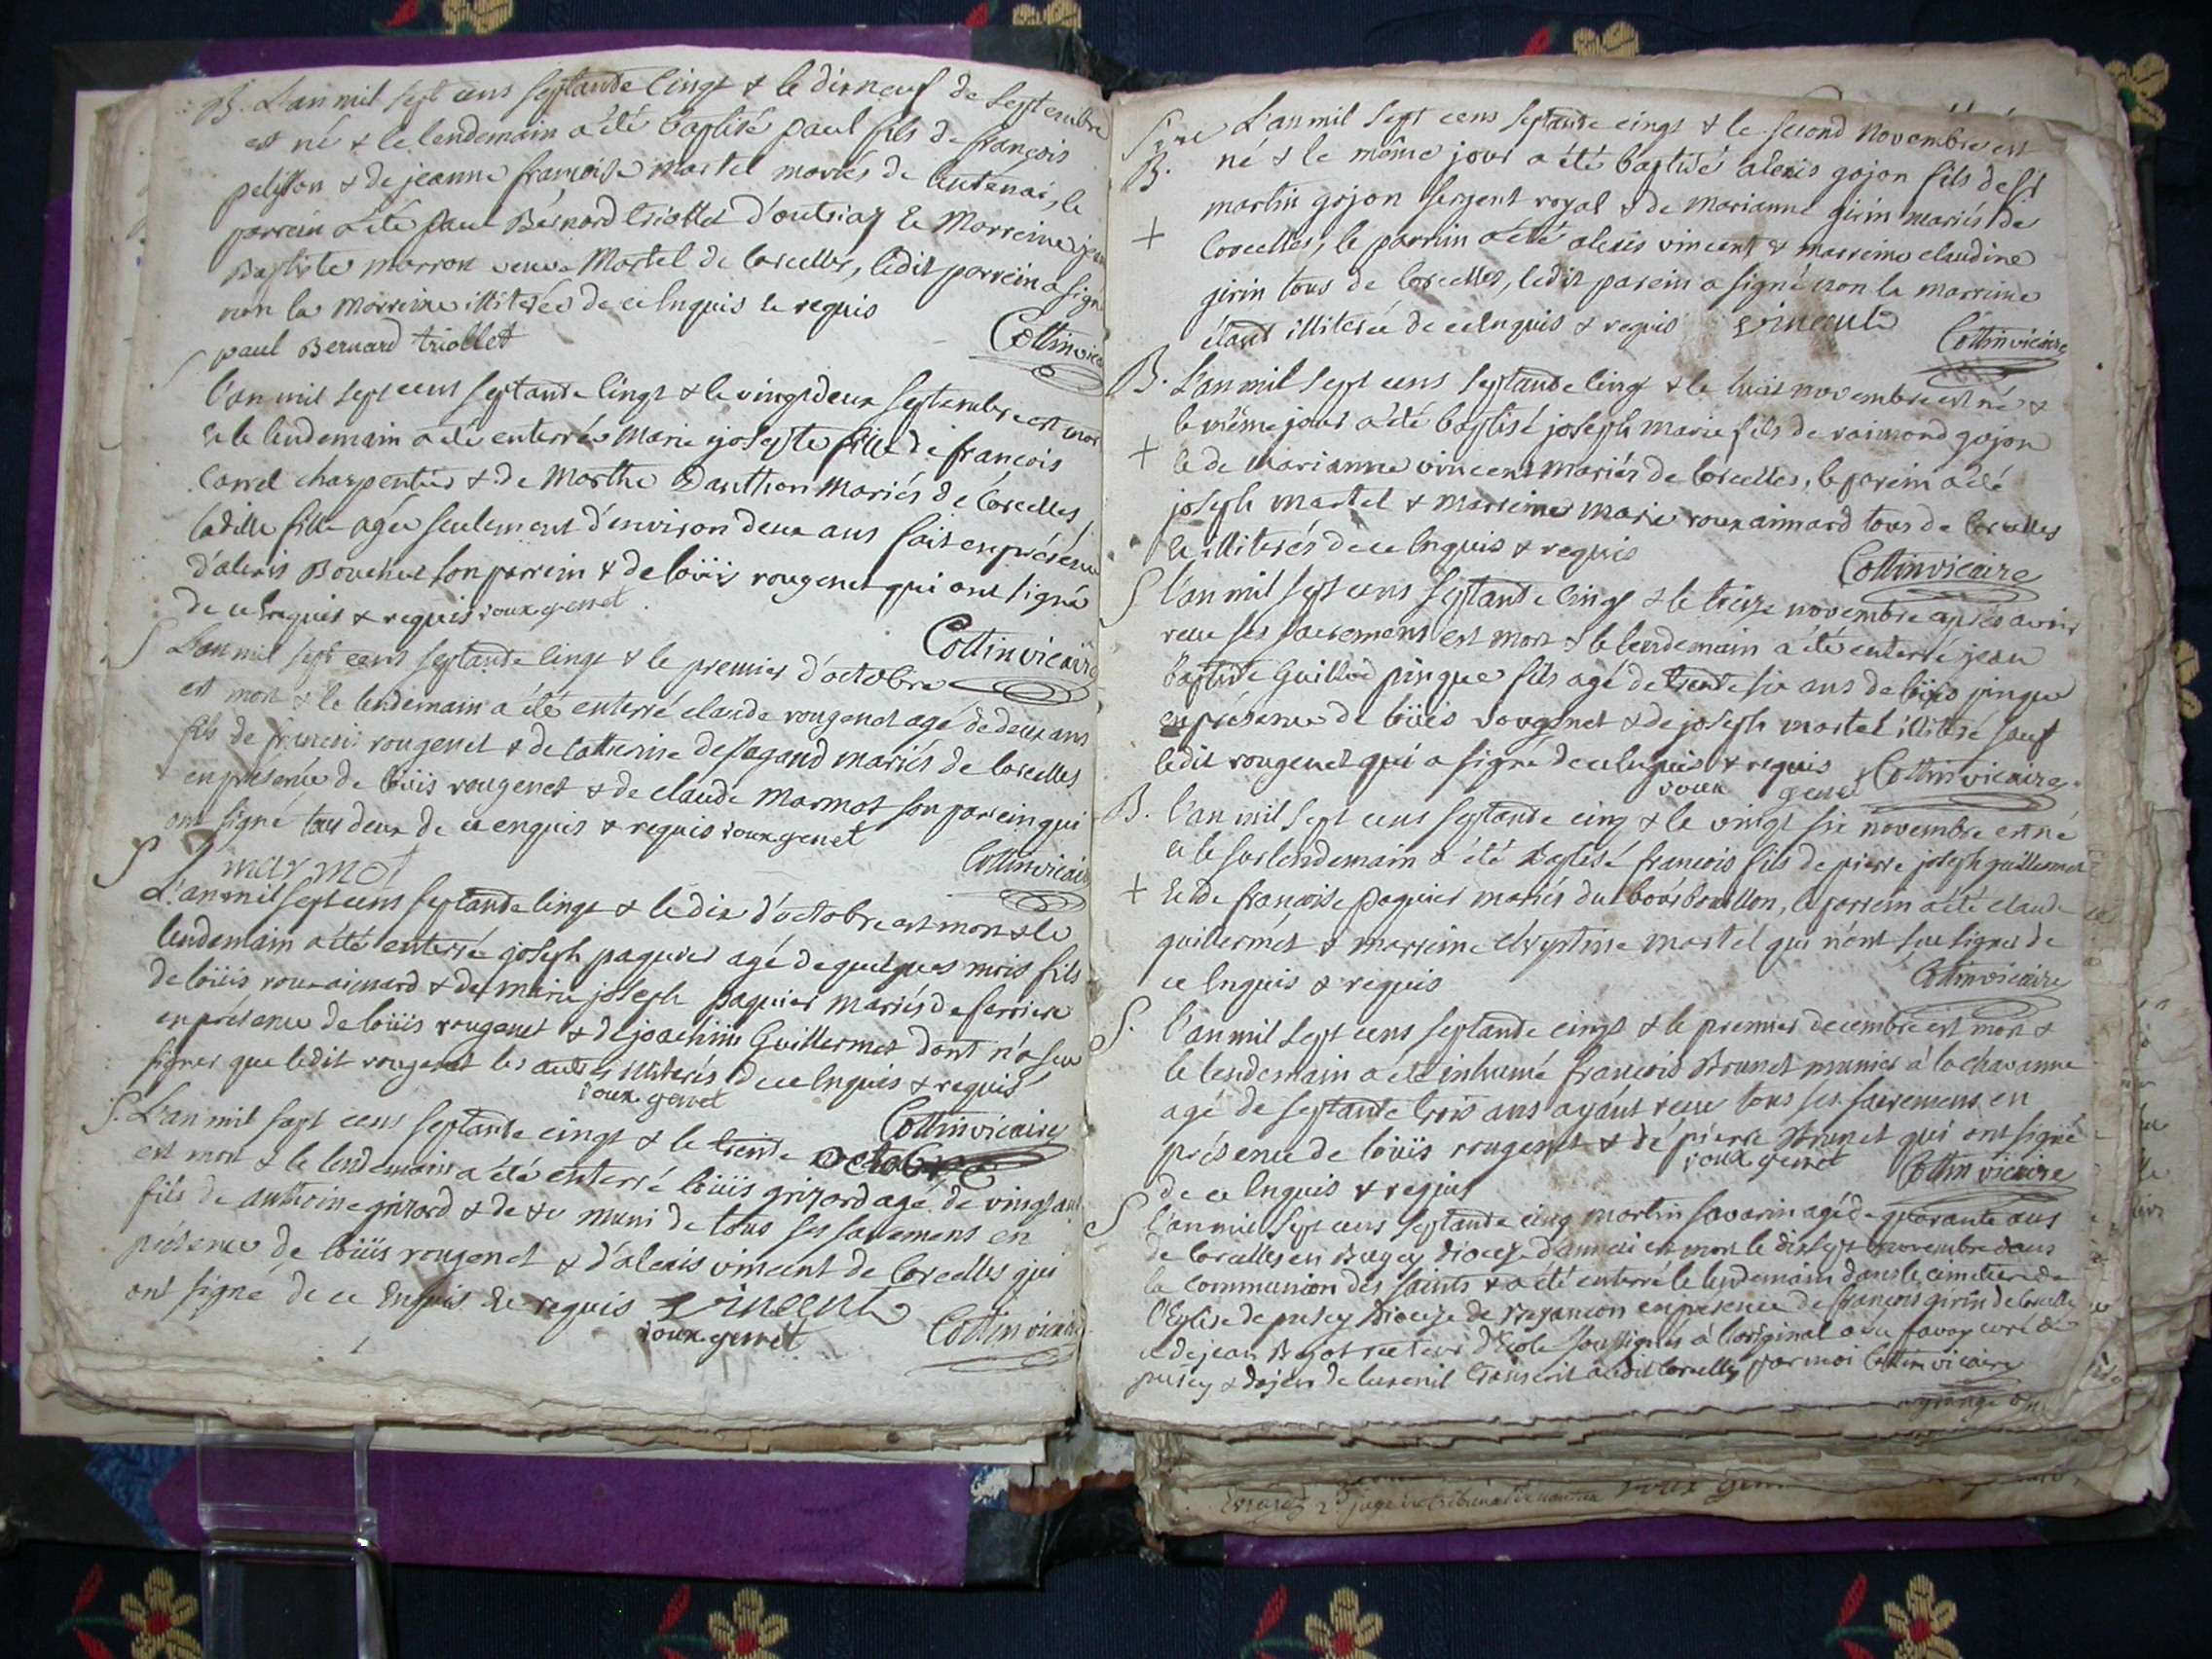 B. L'an mil sept cens septante cinqt & le dixneuf de septembre
est né & le lendemain a été baptisé paul fils de françois
pelisson & de jeanne françoise martel mariés de lantenai, le
parrein a été paul Bernard triollet d'outriaz & Marreine
Baptiste marron veuve Martel de Corcelles, ledit parrein a signé
non la Marreine illiterée de ce Enquis & requis
paul Bernard triollet Cottin vicaire
S l'an mil sept cens septante cinqt & le vingtdeux septembre est mor
& le lendemain a été enterrée Marie josepte fille de françois
Carrel charpentier & de Marthe Danthon Mariés de Corcelles
ladille fille agée seulement d'environ deux ans fait en présence
d'alexis Bouchet son parrein & de loüis rougenet qui ont signé
de ce Enquis & requis rouxgenet
Cottin vicaire
S L'an mil sept cens septante cinqt & le premier d'octobre
est mort & le lendemain a été enterré claude rougenet agé de deux ans
fils de francois rougenet & de Catherine de mariés de Corcelles
en présence de loüis rougenet & de claude Marmot son parrein qui
ont signé tous deux de ce enquis & requis rouxgenet
marmot Cottin vicaire
S L'an mil sept cens septante cinqt & le dix d'octobre est mort & le
lendemain a été enterré joseph paquier agé de quelques mois fils
de loüis rouxaimard & de marie joseph paquier mariés de ferriere
en présence de loüis rougenet & de joachim Guillermet dont n'a seu
signer que ledit rougenet les autres illiterés de ce Enquis & requis
rouxgenet Cottin vicaire
S. L'an mil sept cens septante cinqt & le trente octobre
est mort & le lendemain a été enterré loüis grizard agé de vingt ans
fils de anthoine grizard & de &c muni de tous ses sacremens en
présence de loüis rougenet & d'alexis vincent de Corcelles qui
ont signé de ce Enquis & requis vincent
rouxgenet Cottin vicaire
L'an mil sept cens septante cinqt & le second Novembre est
B. né & le même jour a été baptisé alexis gojon fils de Sr
martin gojon sergent royal & de Marianne girin mariés de
+ Corcelles, le parrein a été alexis vincent & marreine claudine
girin tous de Corcelles, ledit parein a signé non la marreine
étant illiterée de ce Enquis & requis vincent
Cottin vicaire
B. L'an mil sept cens septante cinqt & le huit novembre est né &
le même jour a été baptisé joseph marie fils de raimond gojon
+ & de Marianne vincent mariés de Corcelles, le parein a été
joseph martel & marreine marie rouxaimard tous de Corcelles
& illiterés de ce Enquis & requis
Cottin vicaire
S l'an mil sept cens septante cinqt & le treize novembre après avoir
reçu ses sacremens est mort & le lendemain a été enterré jean
baptiste Guillot pingue fils agé de trente six ans de loüis pingue
en présence de loüis rougenet & de joseph martel illiteré sauf
ledit rougenet qui a signé de ce Enquis & requis
roux genet Cottin vicaire
B. l'an mil sept cens septante cinq & le vingt six novembre est né
& le surlendemain a été Baptisé francois fils de pierre joseph guillermet
+ & de françoise paquier mariés du , le parrein a été claude
guillermet & marreine martel qui n'ont seu signer de
ce Enquis & requis Cottin vicaire
S. l'an mil sept cens septante cinqt & le premier decembre est mort &
le lendemain a été inhumé françois Brunet munier à la chavanne
agé de septante trois ans ayant reçu tous ses sacremens en
présence de loüis rougenet & de pierre Brunet qui ont signé
rouxgenet
de ce Enquis & requis Cottin vicaire
S l'an mil sept cens septante cinq martin savarin agé de quarante ans
de Corcelles en Bugey dioceze d'annecí est mort le dixsept novembre dans
la communion des saints & a été enterré le lendemain dans le cimetiere de
l'Eglise de pusey Dioceze de Bezancon en présence de françois girin de Corcelles
& de jean recteur d'école soussignés à l'original avec favoy curé de
pusey & doyen de luxeuil transcrit audit Corcelles par moi Cottin vicaire
2d juge